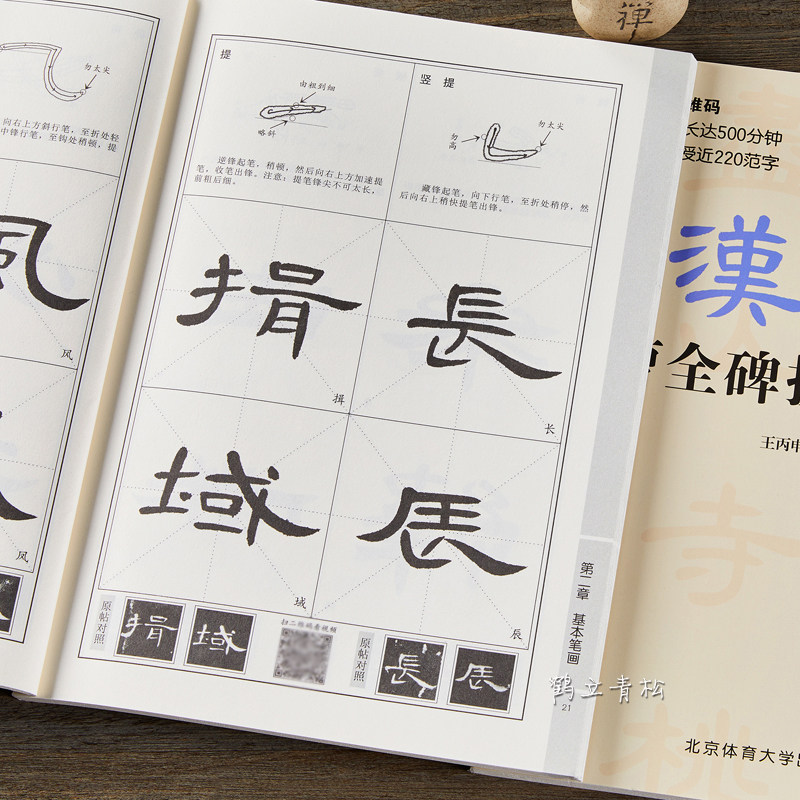 勿太尖
向右上方斜行笔，至折处轻
中锋行笔，至钩处稍顿，提
風
风
风
提
由粗到细
略斜
逆锋起笔，稍顿，然后向右上方加速提
笔，收笔出锋。注意：提笔锋尖不可太长，
前粗后细。
竖提
勿高
勿太尖
藏锋起笔，向下行笔，至折处稍停，然
后向右上稍快提笔出锋。
揖
長
长
域
域
辰
辰
原帖对照
域
扫二维码看视频
原帖对照
長
辰
第二章 基本笔画
21
鹤立青松
禅
维码
长达500分钟
授近220范字
漢
全碑
王丙申
寺
北京体育大学出